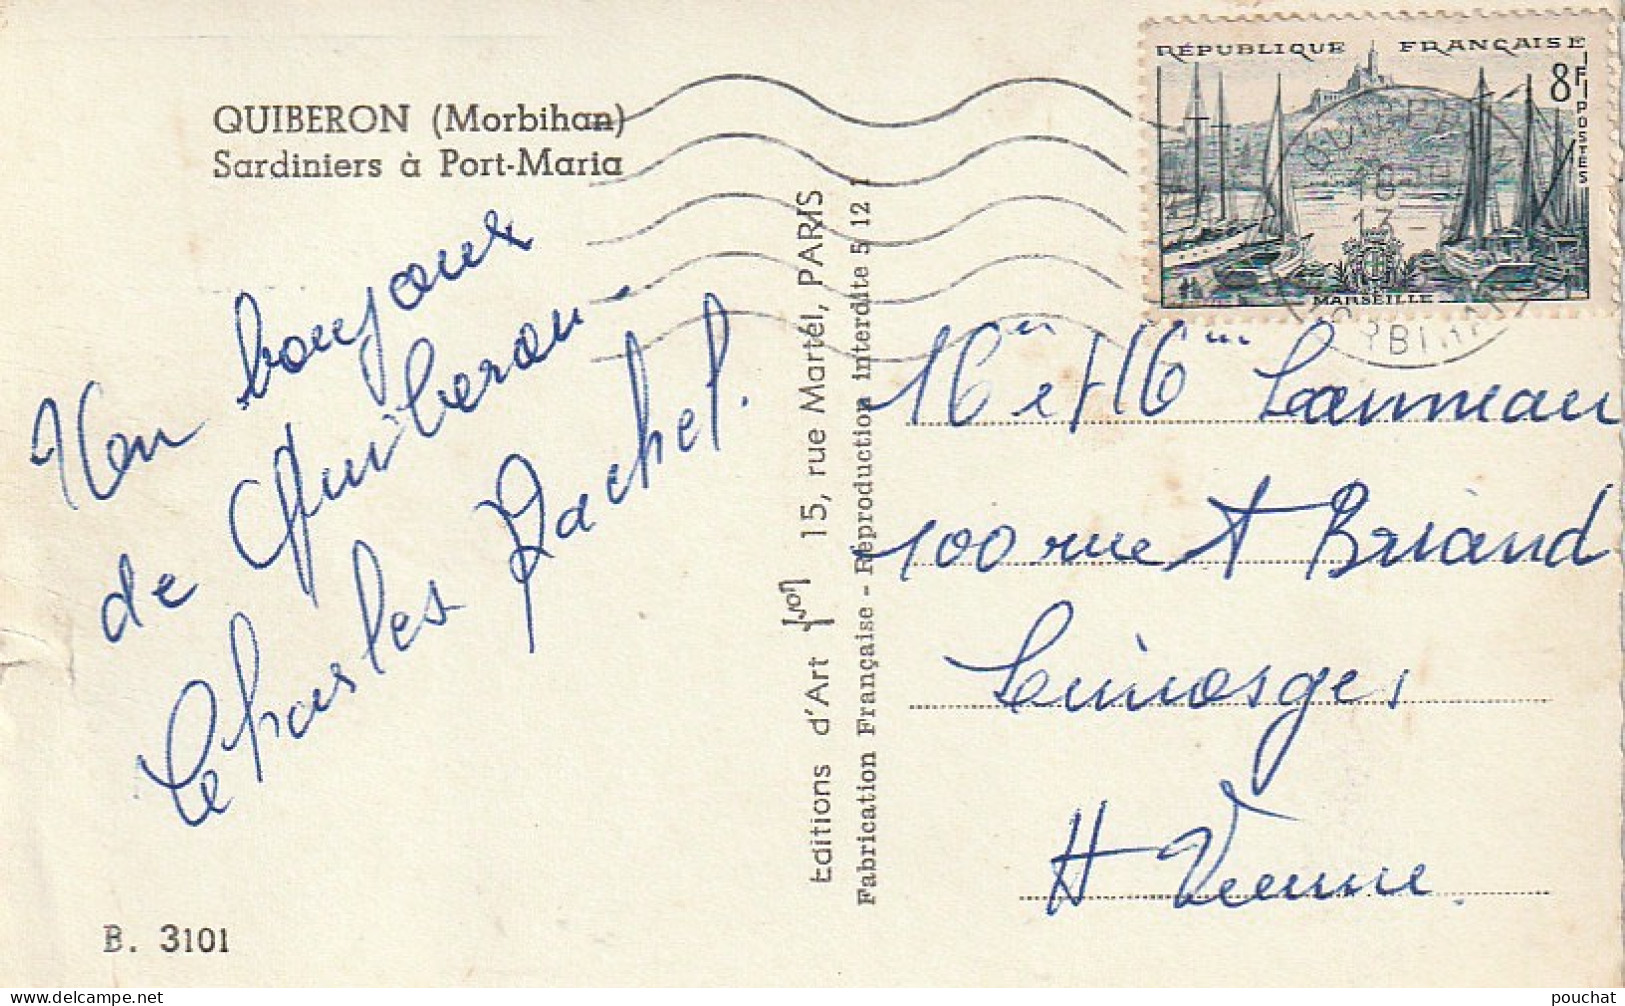 QUIBERON (Morbihan)
Sardiniers à Port-Maria
Mon bonjour
de Quiberon.
Charles Rachel.
B. 3101
Editions d'Art Yvon 15, rue Martel, PARIS
Fabrication Française - Reproduction interdite 5 12 1
RÉPUBLIQUE FRANÇAISE
8F
POSTES
MARSEILLE
18-
13 -
MORBIHAN
Mr et Mme Lanneau
100 rue A Briand
Limosges
H Vienne
pouchat